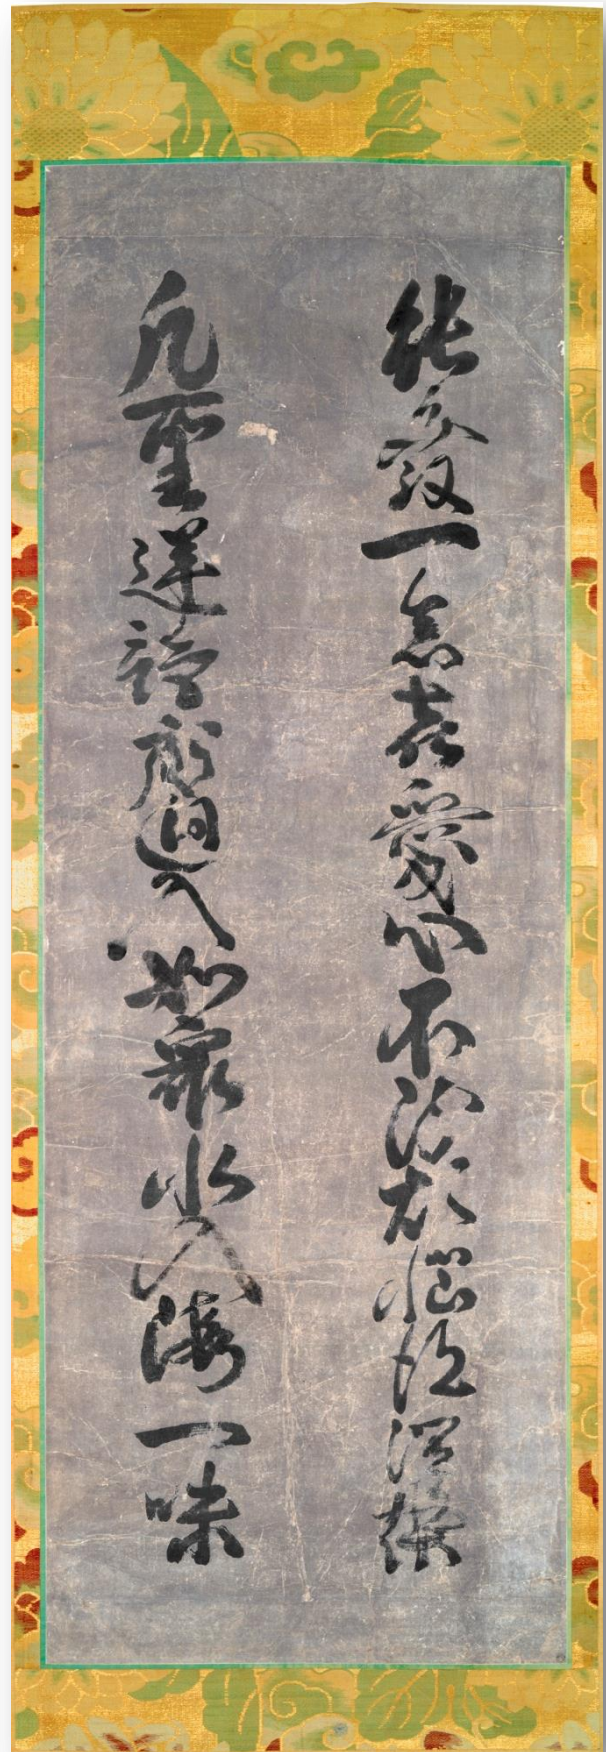 能發一念喜愛心不断煩惱得涅槃
凡聖逆謗齊迴入如衆水入海一味